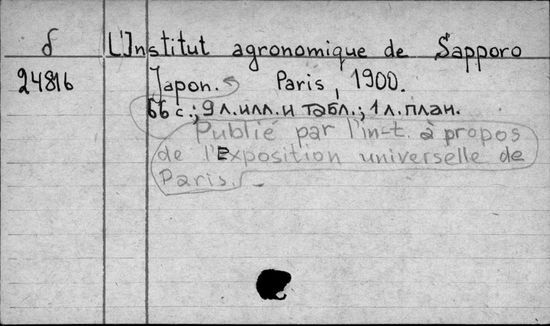 б L'Institut agronomique de Sapporo
24816 Japon. Paris, 1900.
66 с.; 9 л. илл. и табл.; 1 л. план.
Publié par l'in-t. à propos
de l'Exposition universelle de
Paris.